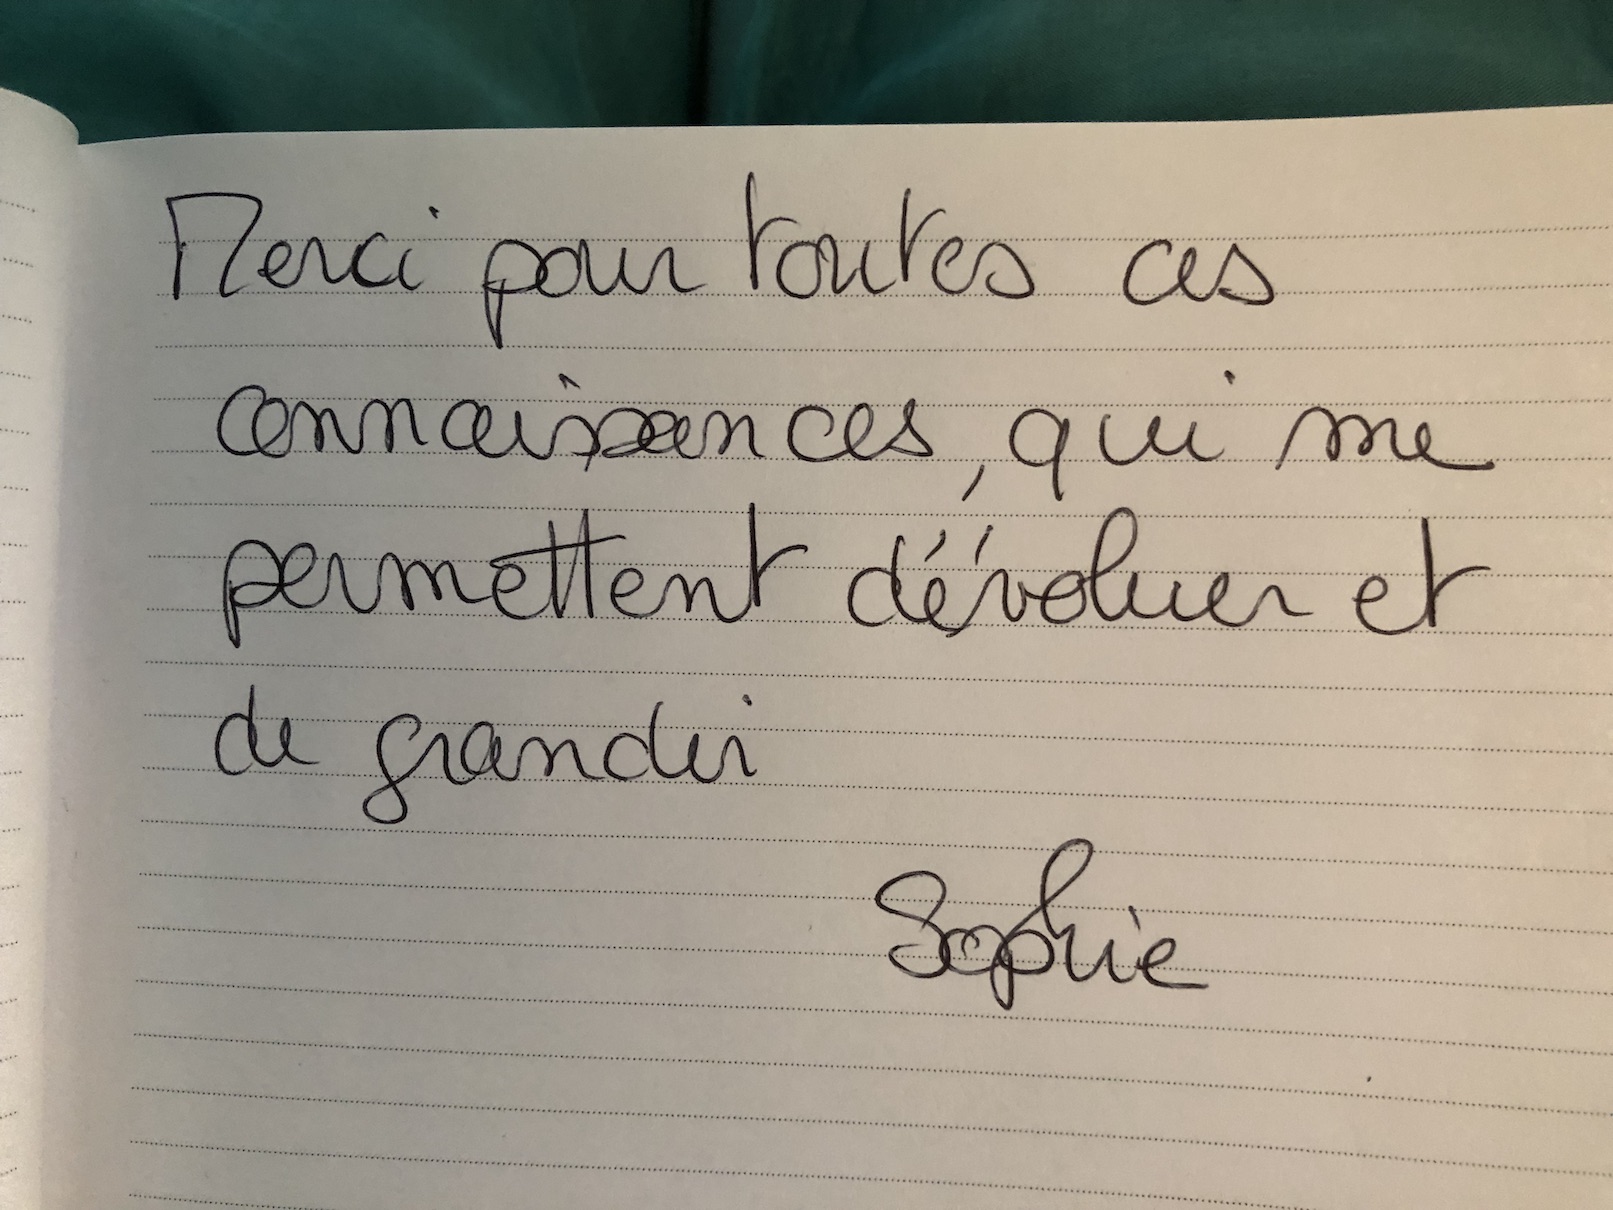 Merci pour toutes ces
connaissances, qui me
permettent d'évoluer et
de grandir
Sophie